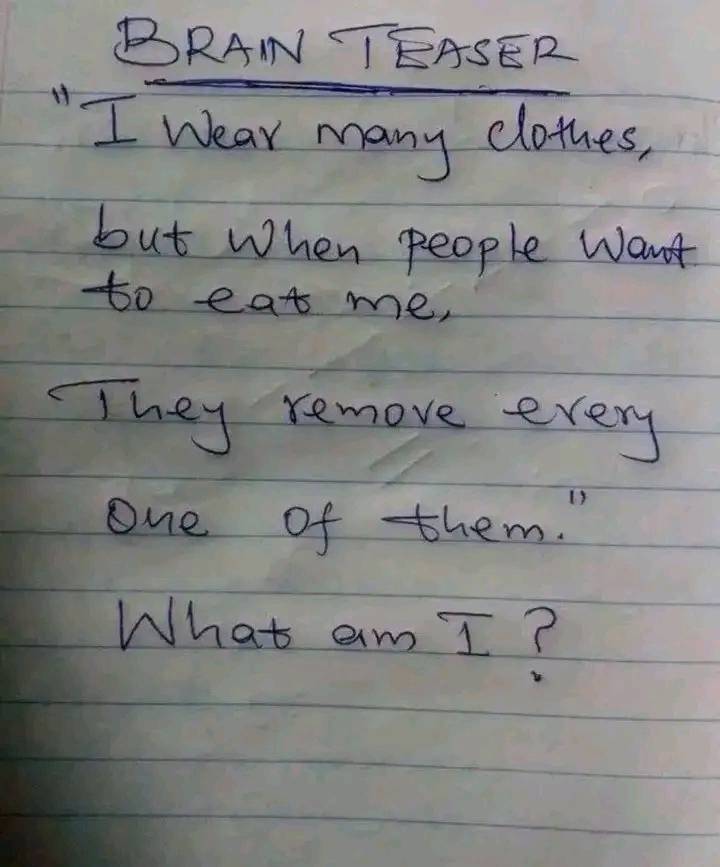 BRAIN TEASER
"I Wear many clothes,
but when people want
to eat me,
They remove every
one of them."
What am I?